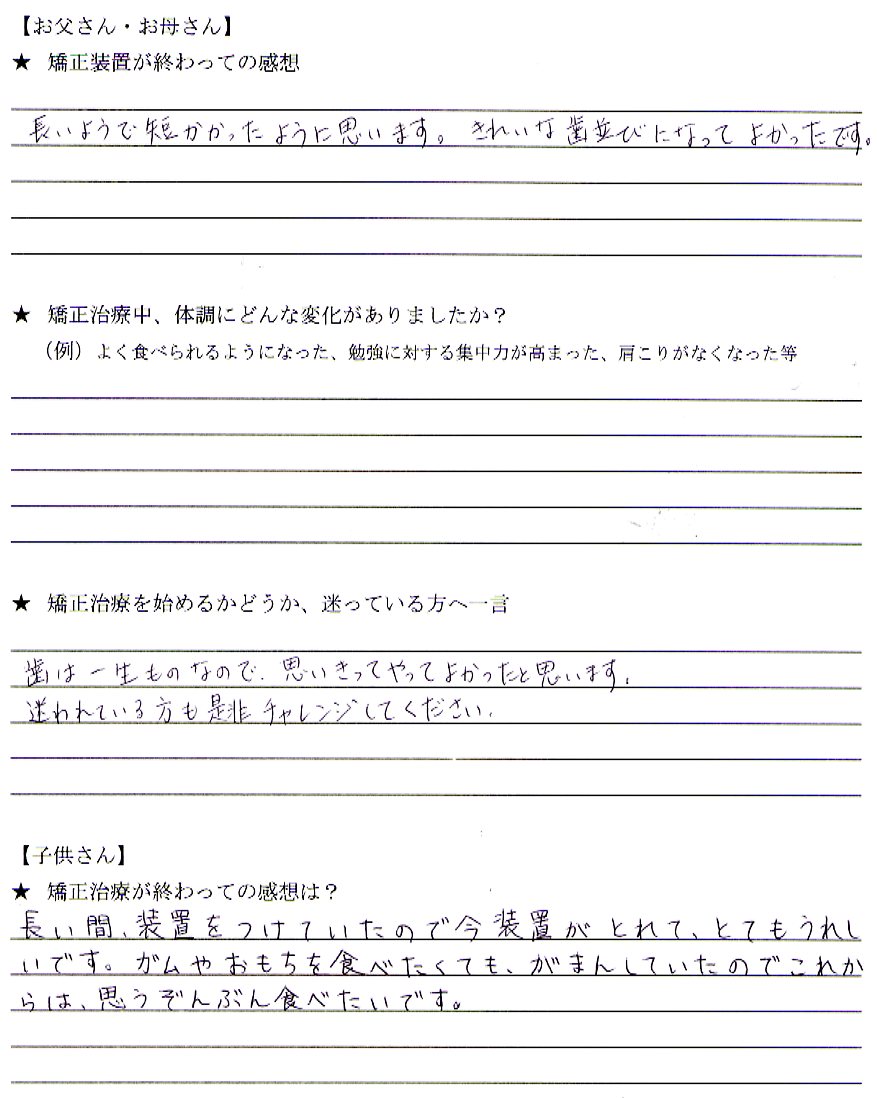 【お父さん・お母さん】
★ 矯正装置が終わっての感想
長いようで短かかったように思います。きれいな歯並びになってよかったです。
★ 矯正治療中、体調にどんな変化がありましたか？
（例）よく食べられるようになった、勉強に対する集中力が高まった、肩こりがなくなった等
★ 矯正治療を始めるかどうか、迷っている方へ一言
歯は一生ものなので、思いきってやってよかったと思います。
迷われている方も是非チャレンジしてください。
【子供さん】
★ 矯正治療が終わっての感想は？
長い間、装置をつけていたので今装置がとれて、とてもうれし
いです。ガムやおもちを食べたくても、がまんしていたのでこれか
らは、思うぞんぶん食べたいです。